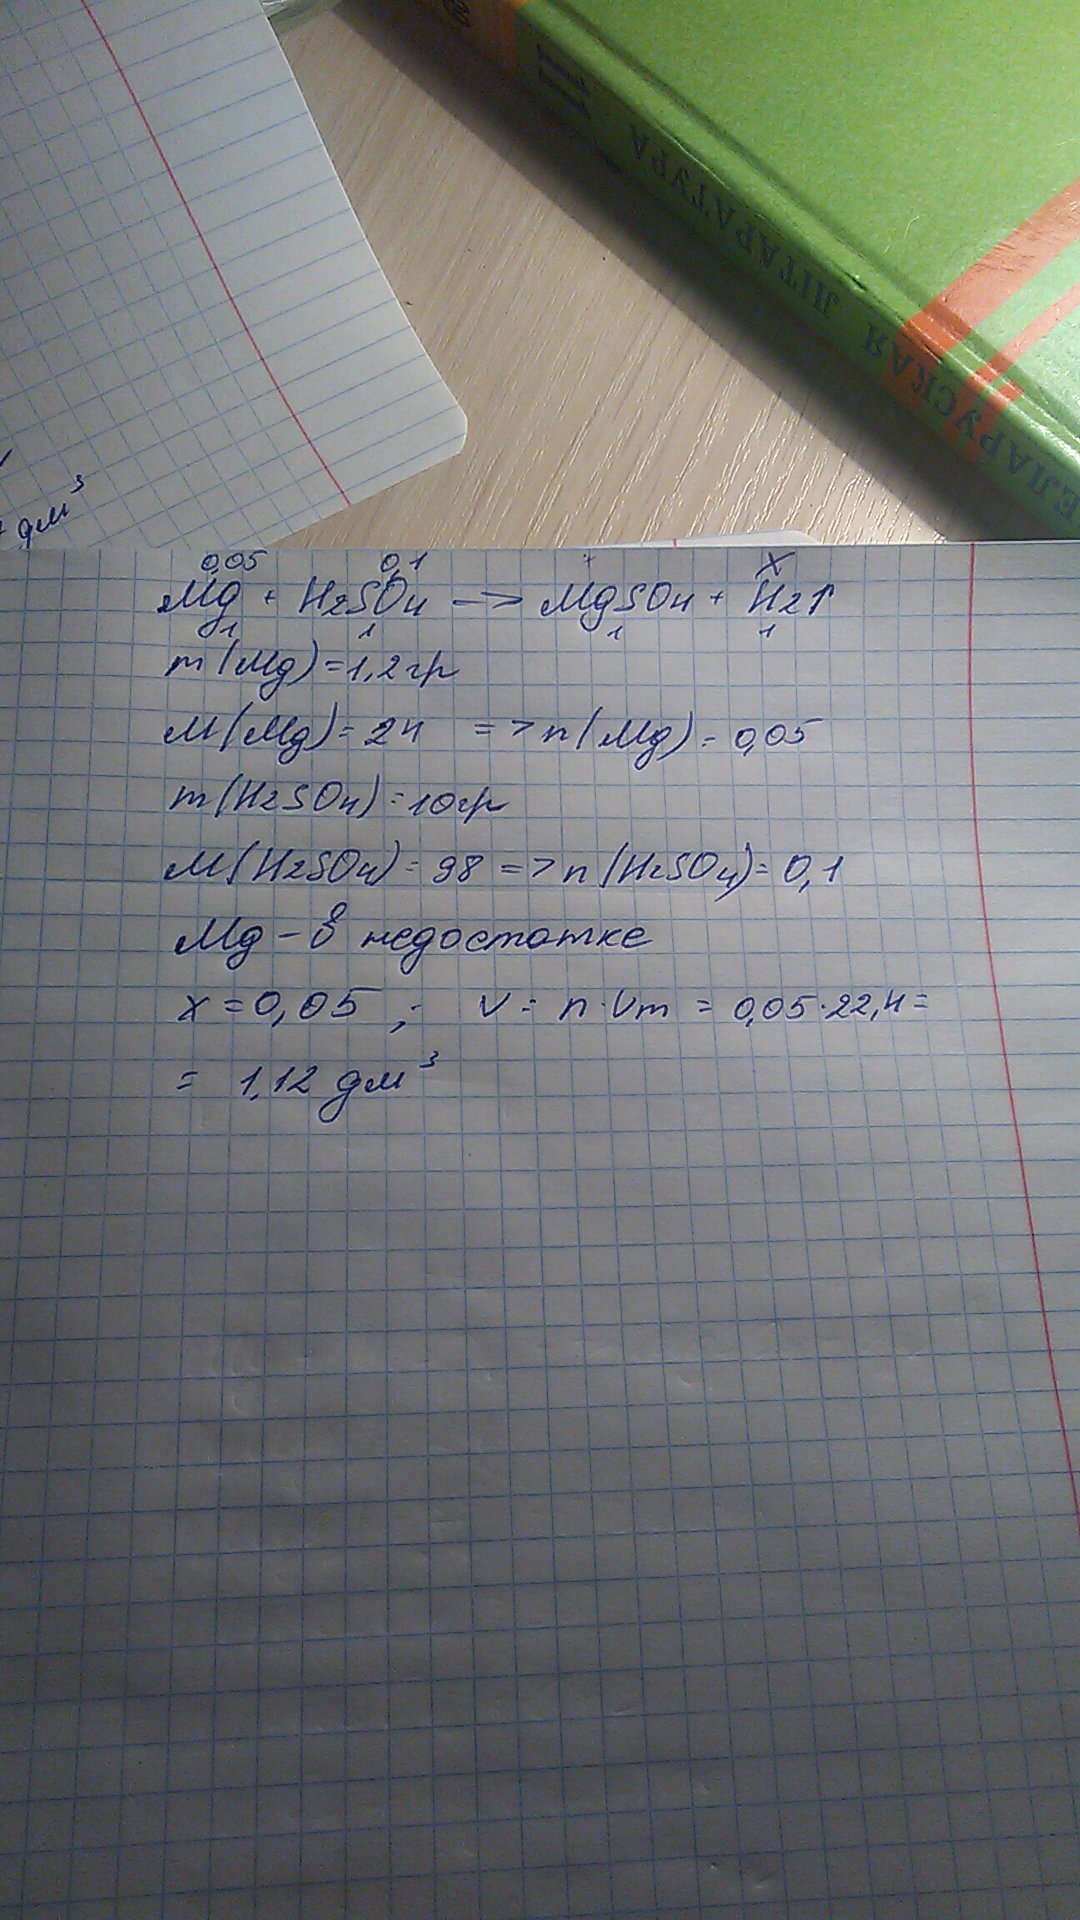 11
БЕЛАРУСКАЯ ЛІТАРАТУРА
дм³
0,05 0,1 x
Mg + H2SO4 —> MgSO4 + H2↑
1 1 1 1
m(Mg)=1,2гр
M(Mg)=24 => n(Mg)=0,05
m(H2SO4)=10гр
M(H2SO4)=98 => n(H2SO4)=0,1
Mg – в недостатке
x=0,05 ; V= n·Vm = 0,05·22,4=
= 1,12 дм³